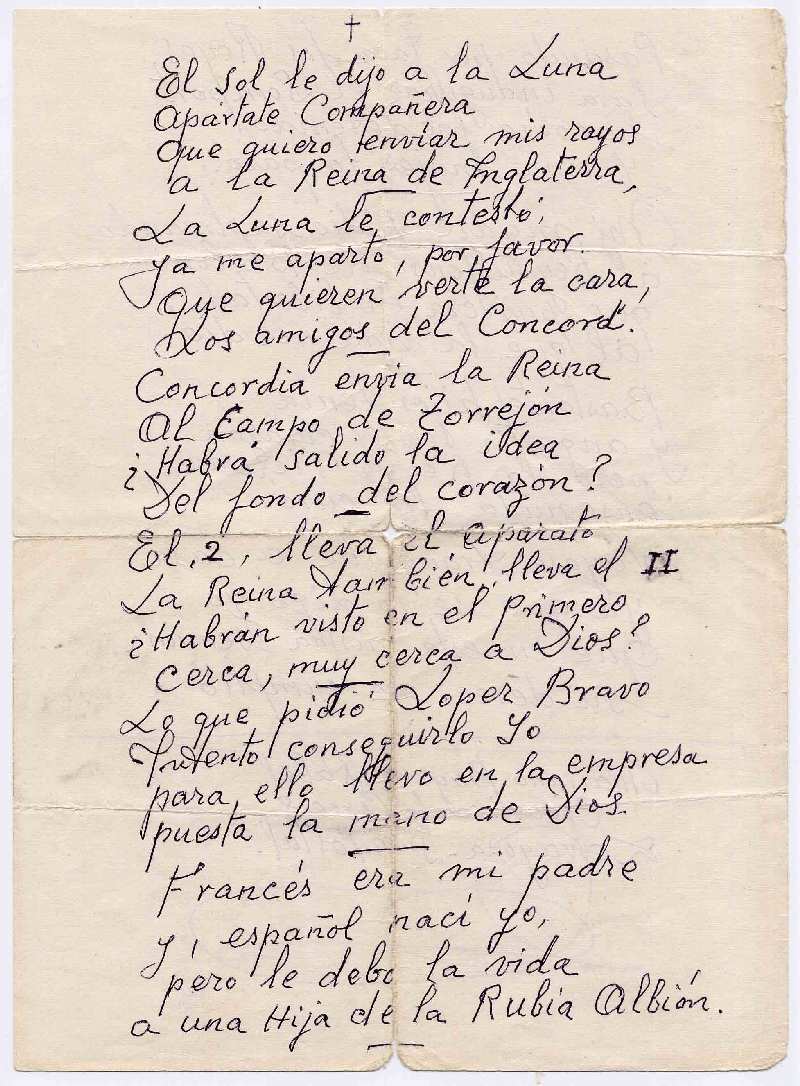 El sol le dijo a la Luna
Apártate Compañera
que quiero enviar mis rayos
a la Reina de Inglaterra,
La Luna le contestó;
Ya me aparto, por favor.
Que quieren verte la cara,
Los amigos del Concord".
Concordia envia la Reina
Al Campo de Torrejón
¿Habrá salido la idea
Del fondo del corazón?
El, 2, lleva el aparato,
La Reina también, lleva el II
¿Habrán visto en el primero
cerca, muy cerca a Dios?
Lo que pidió Loper Bravo
Intento conseguirlo Yo
para ello llevo en la empresa
puesta la mano de Dios.
Francés era mi padre
y, español nací yo,
pero le debo la vida
a una Hija de la Rubia Albión.